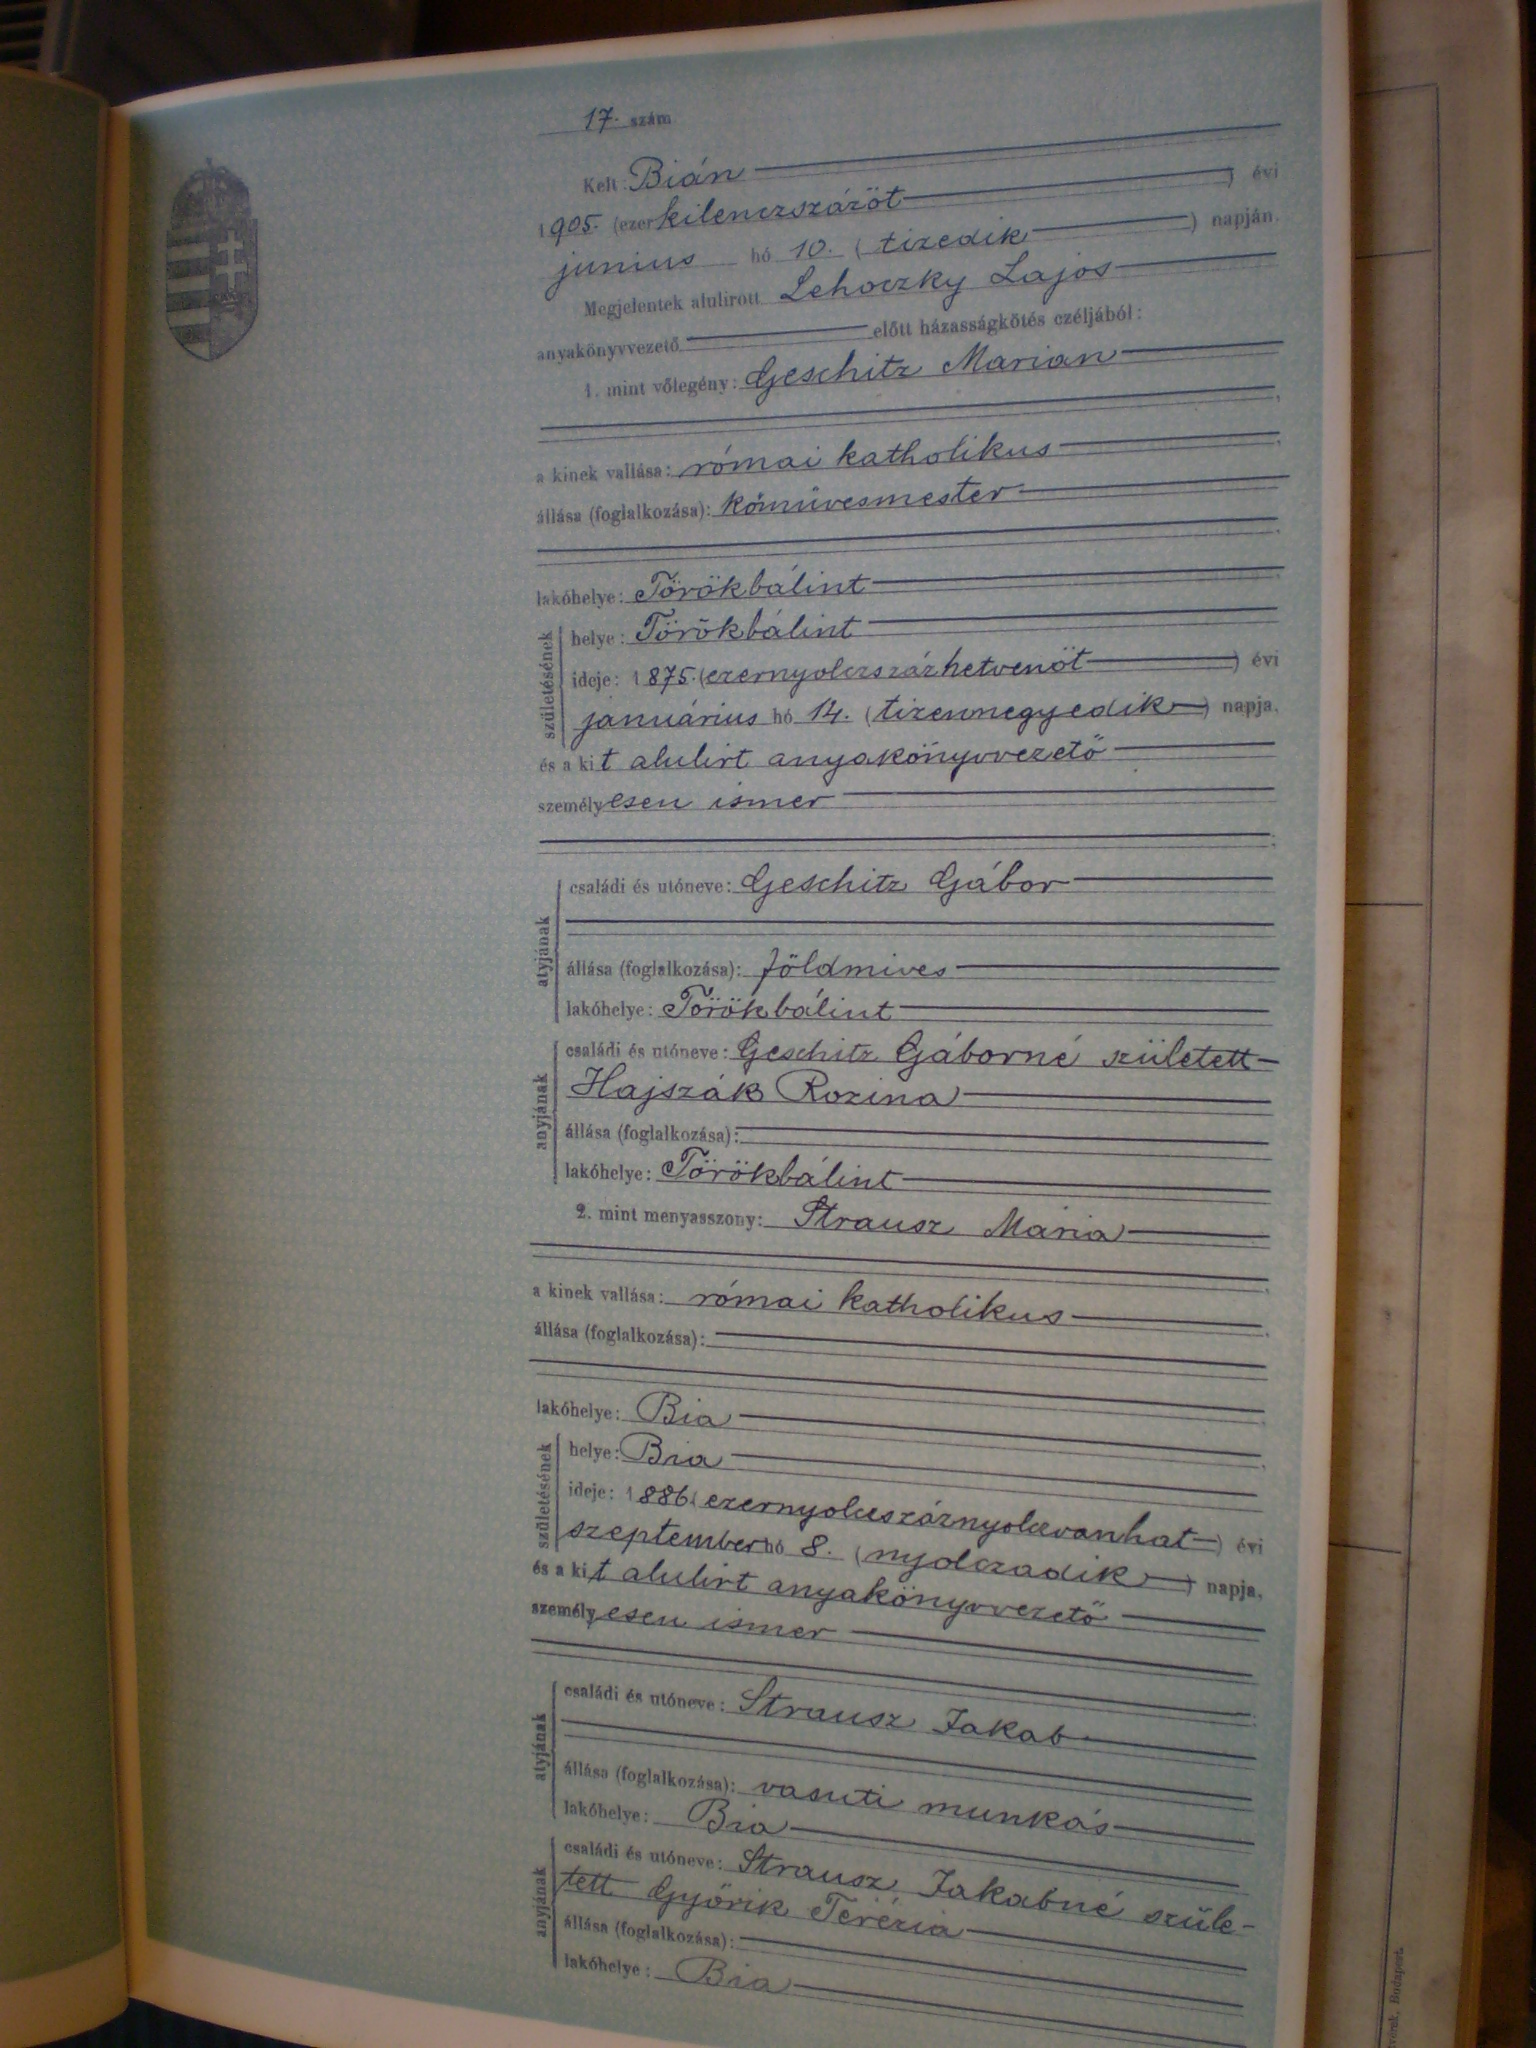 17. szám
Kelt: Bián
1905. (ezerkilenczszázöt) évi
junius hó 10. (tizedik) napján.
Megjelentek alulirott Lehoczky Lajos
anyakönyvvezető előtt házasságkötés czéljából:
1. mint vőlegény: Geschitz Marian
a kinek vallása: római katholikus
állása (foglalkozása): kőmüvesmester
lakóhelye: Törökbálint
születésének
helye: Törökbálint
ideje: 1875. (ezernyolczszázhetvenöt) évi
januárius hó 14. (tizennegyedik) napja,
és a kit alulirt anyakönyvvezető
személyesen ismer
atyjának
családi és utóneve: Geschitz Gábor
állása (foglalkozása): földmives
lakóhelye: Törökbálint
anyjának
családi és utóneve: Geschitz Gáborné született
Hajszák Rozina
állása (foglalkozása):
lakóhelye: Törökbálint
2. mint menyasszony: Strausz Mária
a kinek vallása: római katholikus
állása (foglalkozása):
lakóhelye: Bia
születésének
helye: Bia
ideje: 1886. (ezernyolczsázнyolczvanhat) évi
szeptember hó 8. (nyolczadik) napja,
és a kit alulirt anyakönyvvezető
személyesen ismer
atyjának
családi és utóneve: Strausz Jakab
állása (foglalkozása): vasuti munkás
lakóhelye: Bia
anyjának
családi és utóneve: Strausz Jakabné szüle-
tett Győrik Terézia
állása (foglalkozása):
lakóhelye: Bia
Budapest.